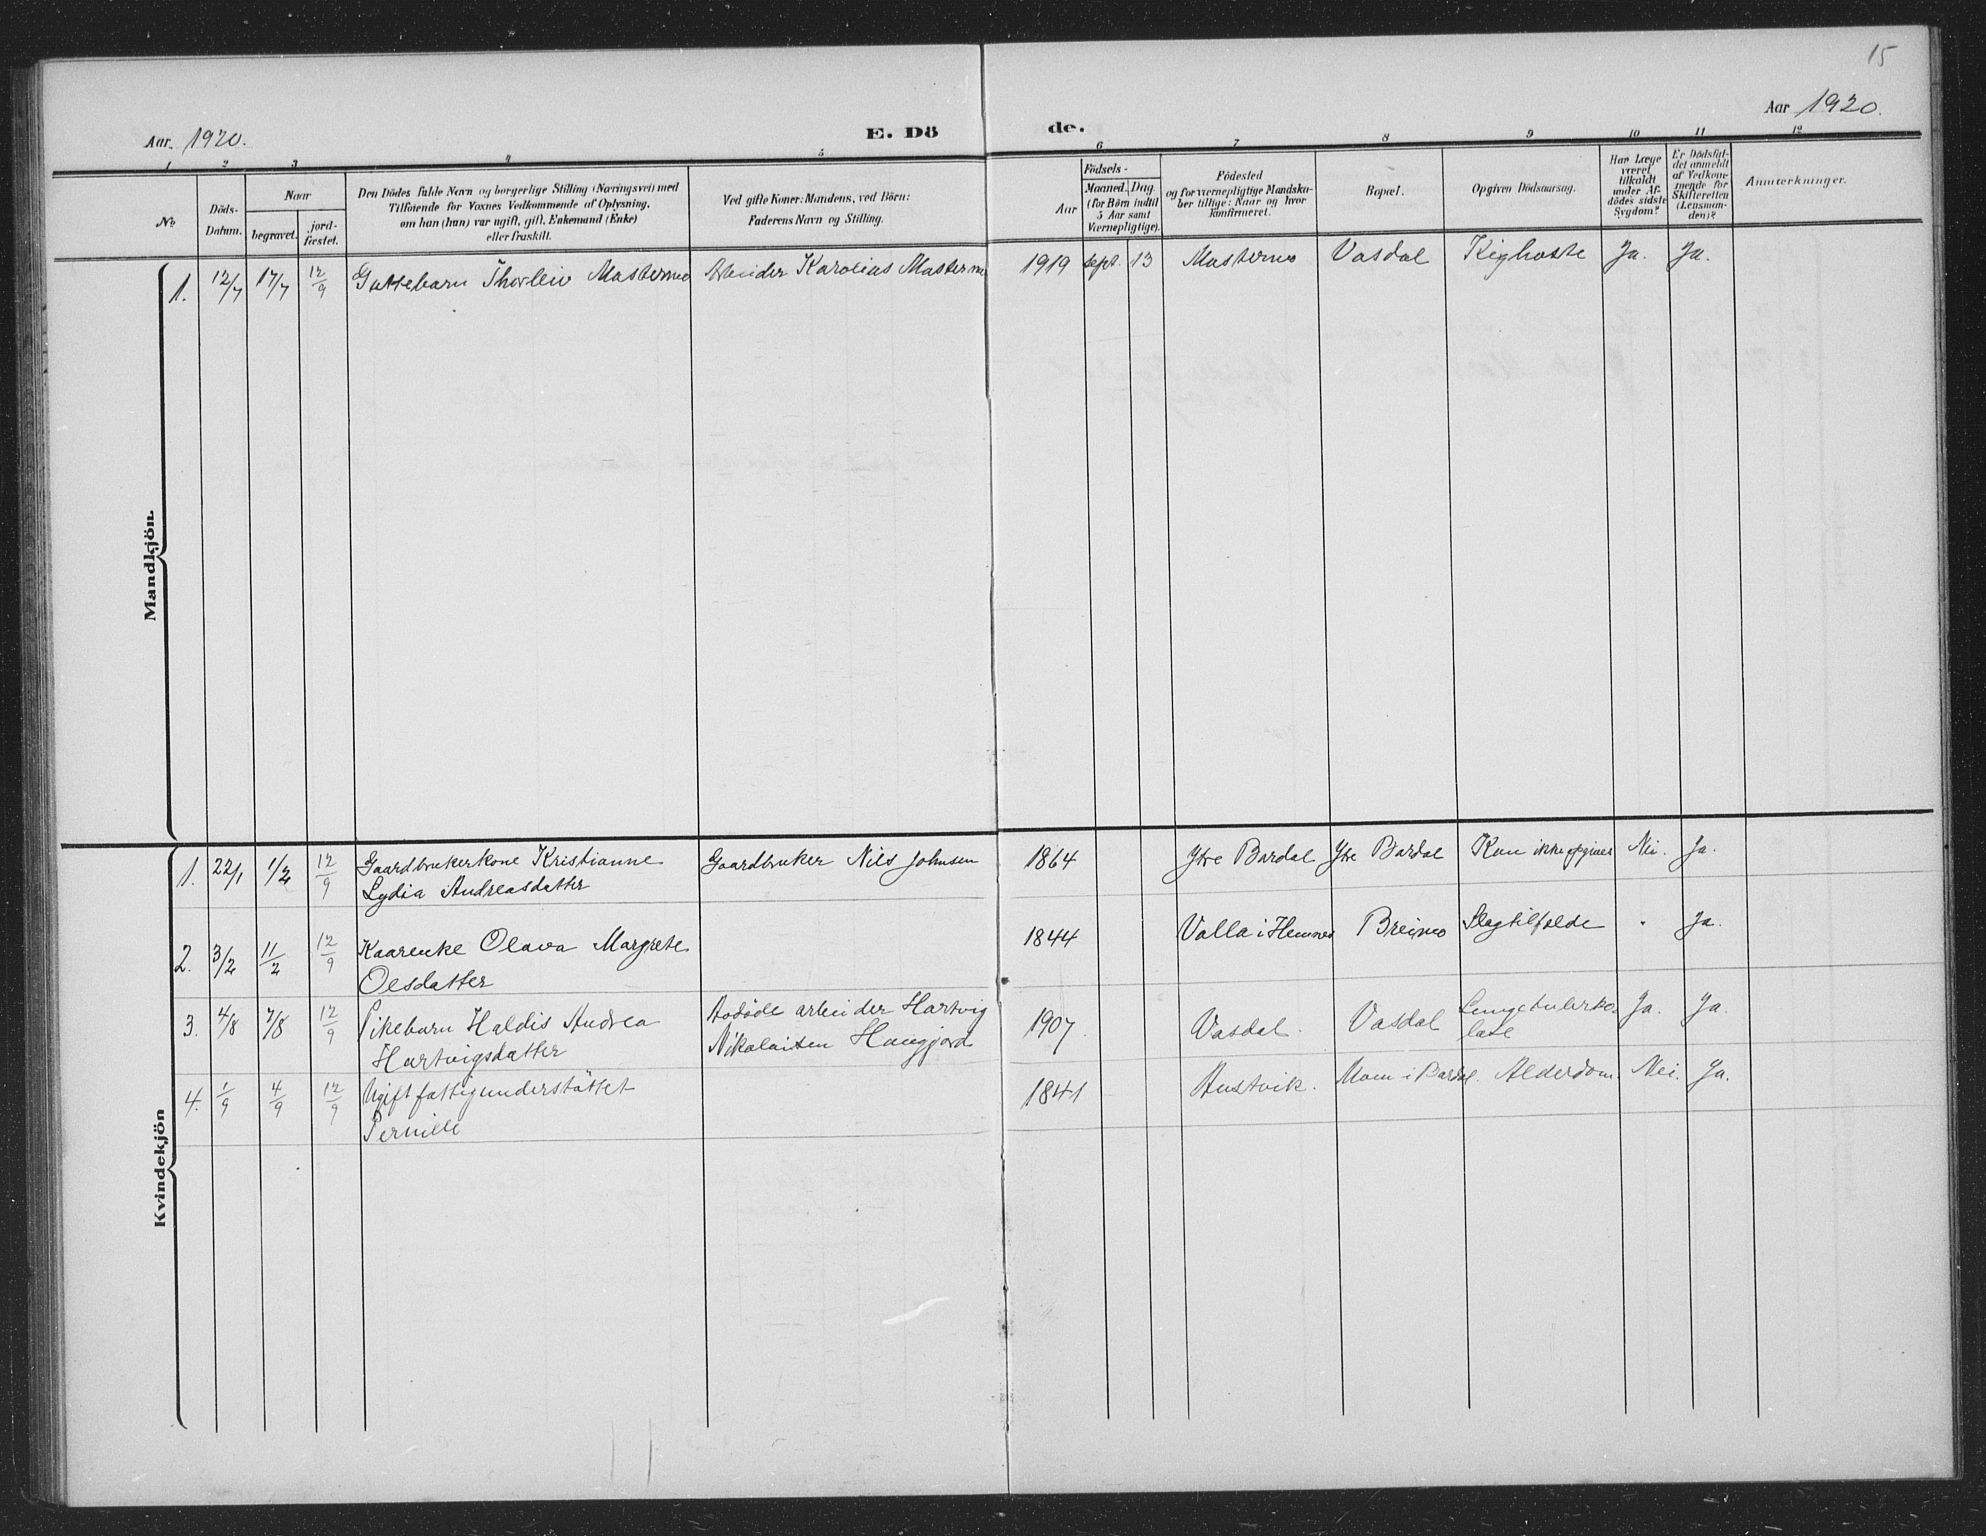 15
Aar. 1920.
E. Dö
de.
Aar 1920.
1 2 3 4 5 6 7 8 9 10 11 12
No.
Döds-
Datum.
Naar
begravet.
jord-
fæstet.
Den Dödes fulde Navn og borgerlige Stilling (Næringsvei) med
Tilföiende for Voxnes Vedkommende af Oplysning,
om han (hun) var ugift, gift, Enkemand (Enke)
eller fraskilt.
Ved gifte Koner: Mandens, ved Börn:
Faderens Navn og Stilling.
Födsels-
Aar
Maaned. Dag
(for Børn indtil
5 Aar samt
Værnepligtige).
Födested
og for værnepligtige Mandska-
ber tillige: Naar og hvor
konfirmeret.
Bopæl.
Opgiven Dödsaarsag.
Har Læge
været
tilkaldt
under Af-
dödes sidste
Sygdom?
Er Dödsfal-
det anmeldt
af Vedkom-
mende for
Skifteretten
(Lensman-
den)?
Anmærkninger.
Mandkjön.
1. 12/7 17/7 12/9 Guttebarn Thorleiv Mastermo Arbeider Karolius Mastermo 1919 sept. 13 Mastermo Vasdal Kighoste Ja. Ja.
Kvindekjön
1. 22/1 1/2 12/9 Gaardbrukerkone Kristianne Gaardbruker Nils Johnsen 1864 Ytre Bardal Ytre Bardal Kan ikke opgives Nei. Ja.
Lydia Andreasdatter
2. 3/2 11/2 12/9 Kaarenke Olava Margrete 1844 Valla i Hemnes Breimo Slagtilfelde " Ja.
Olsdatter
3. 4/8 7/8 12/9 Pikebarn Haldis Andrea Avdøde arbeider Hartvig 1907. Vasdal. Vasdal Lungetuberko- Ja. Ja.
Hartvigsdatter Nikolaisen Haugjord lose
4. 1/9 4/9 12/9 Ugift fattigunderstøttet 1841 Hustvik. Moen i Bardal. Alderdom. Nei. Ja.
Pernille